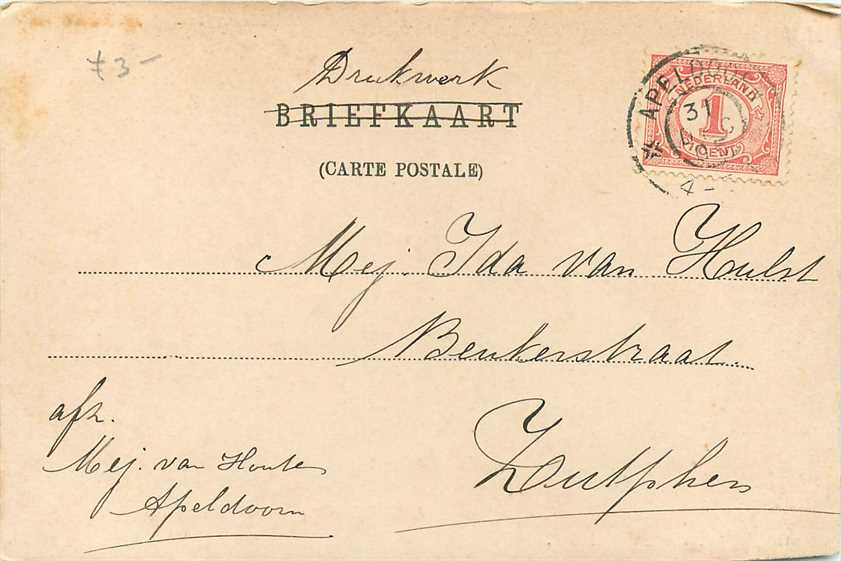 f 3-
Drukwerk
BRIEFKAART
(CARTE POSTALE)
APELDOORN
31
4-
NEDERLAND
1
Mej. Ida van Hulst
Beukerstraat.
Zutphen
afz.
Mej. van Houten
Apeldoorn